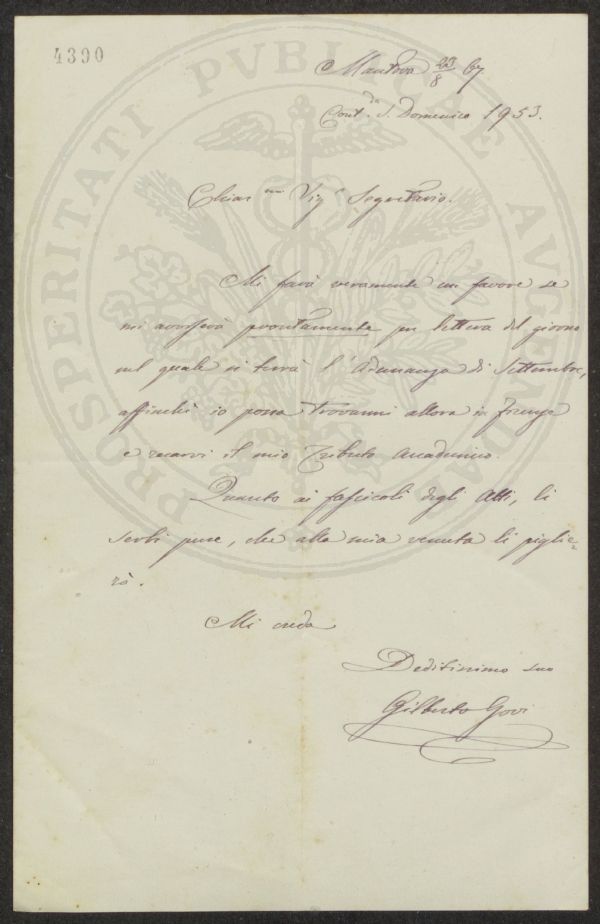 4390
PROSPERITATI PVBLICAE AVGENDAE
Mantova 23/8 67
Cont.da S. Domenico 1953.
Chiar.mo Sig.r Segretario.
Mi farà veramente un favore se
mi avviserà prontamente per lettera del giorno
nel quale si terrà l'Adunanza di Settembre,
affinchè io possa trovarmi allora in Firenze
e recarvi il mio Tributo Accademico.
Quanto ai fascicoli degli Atti, li
serbi pure, che alla mia venuta li piglie=
rò.
Mi creda
Deditissimo suo
Gilberto Govi